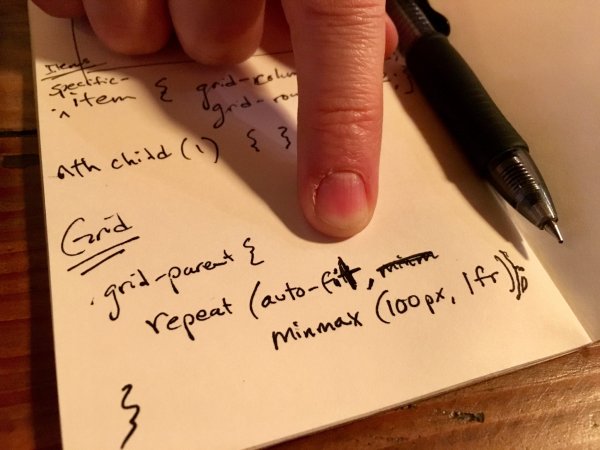 Items
specific-
item { grid-colum
grid-row
nth child (1) { }
Grid
.grid-parent {
repeat (auto-fit,
minmax (100px, 1fr));
}